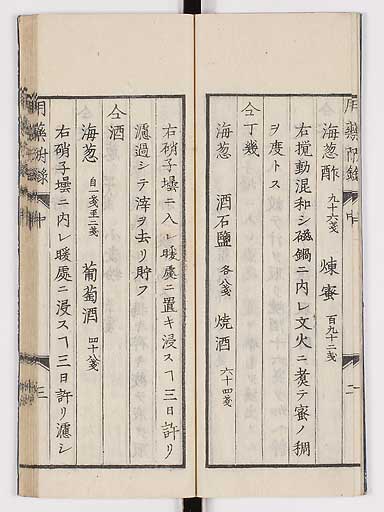 用藥附錄 中 二
海葱酢 九十六戔 煉蜜 百九十二戔
右攪動混和シ磁鍋ニ内レ文火ニ煮テ蜜ノ稠
ヲ度トス
仝丁幾
海葱 酒石鹽 各八戔 焼酒 六十四戔
右硝子壜ニ入レ暖處ニ置キ浸スヿ三日許リ
濾過シテ滓ヲ去リ貯フ
仝酒
海葱 自一戔至二戔 葡萄酒 四十八戔
右硝子壜ニ内レ暖處ニ浸スヿ三日許リ濾シ
用藥附錄 中 三